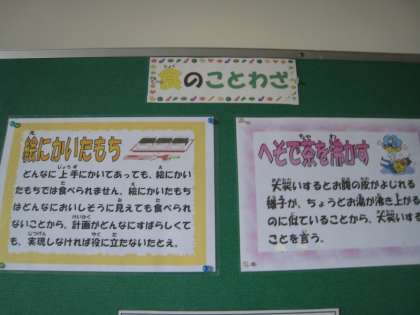 食のことわざ
しょく
絵にかいたもち
え
どんなに上手にかいてあっても、絵にかい
じょうず
え
たもちでは食べられません。絵にかいたもち
た
え
はどんなにおいしそうに見えても食べられ
み
た
ないことから、計画がどんなにすばらしくて
けいかく
も、実現しなければ役に立たないたとえ。
じつげん
やく
た
へそで茶を沸かす
ちゃ
わ
大笑いするとお腹の皮がよじれる
様子が、ちょうどお湯が沸き上がる
のに似ていることから、大笑いする
ことを言う。